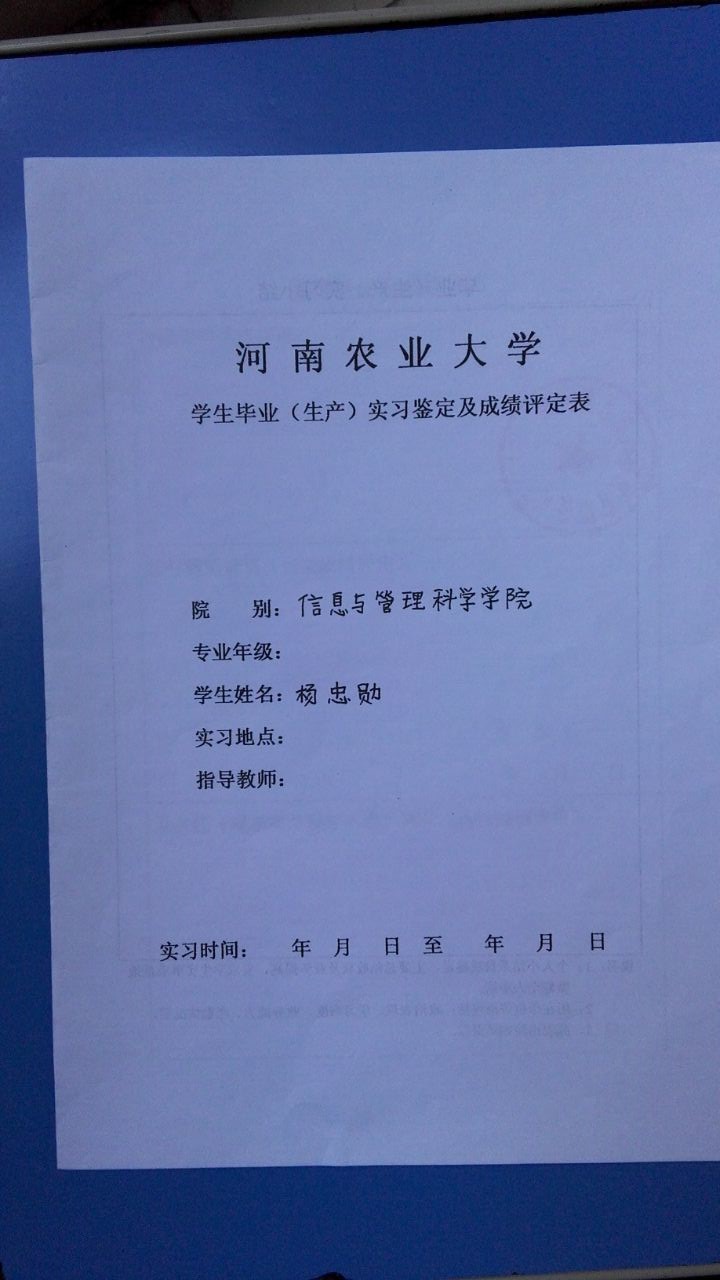 河南农业大学
学生毕业（生产）实习鉴定及成绩评定表
院　　别：信息与管理科学学院
专业年级：
学生姓名：杨忠勋
实习地点：
指导教师：
实习时间：　　年　月　　日　至　　年　月　　日